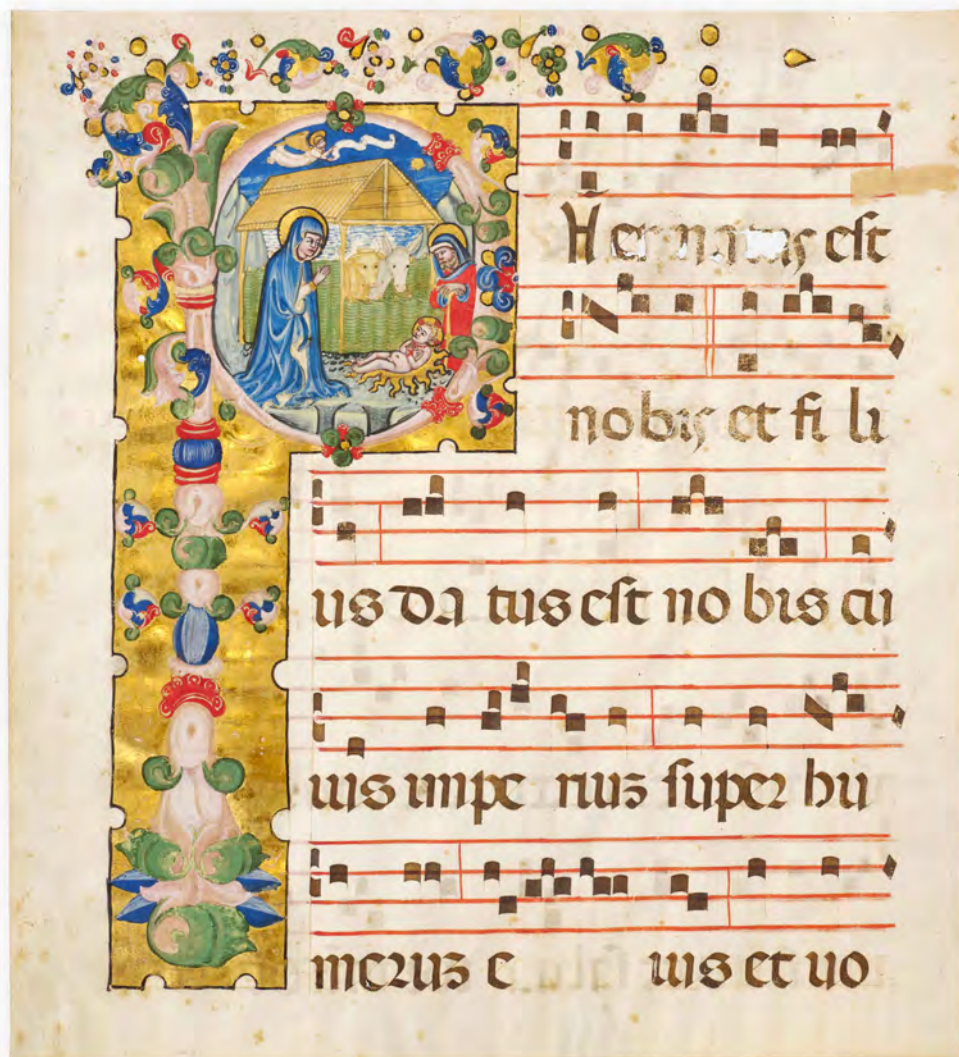 PUer natus est
nobis et fi li
us da tus est no bis cu
ius impe riuz super hu
meruz e ius et uo